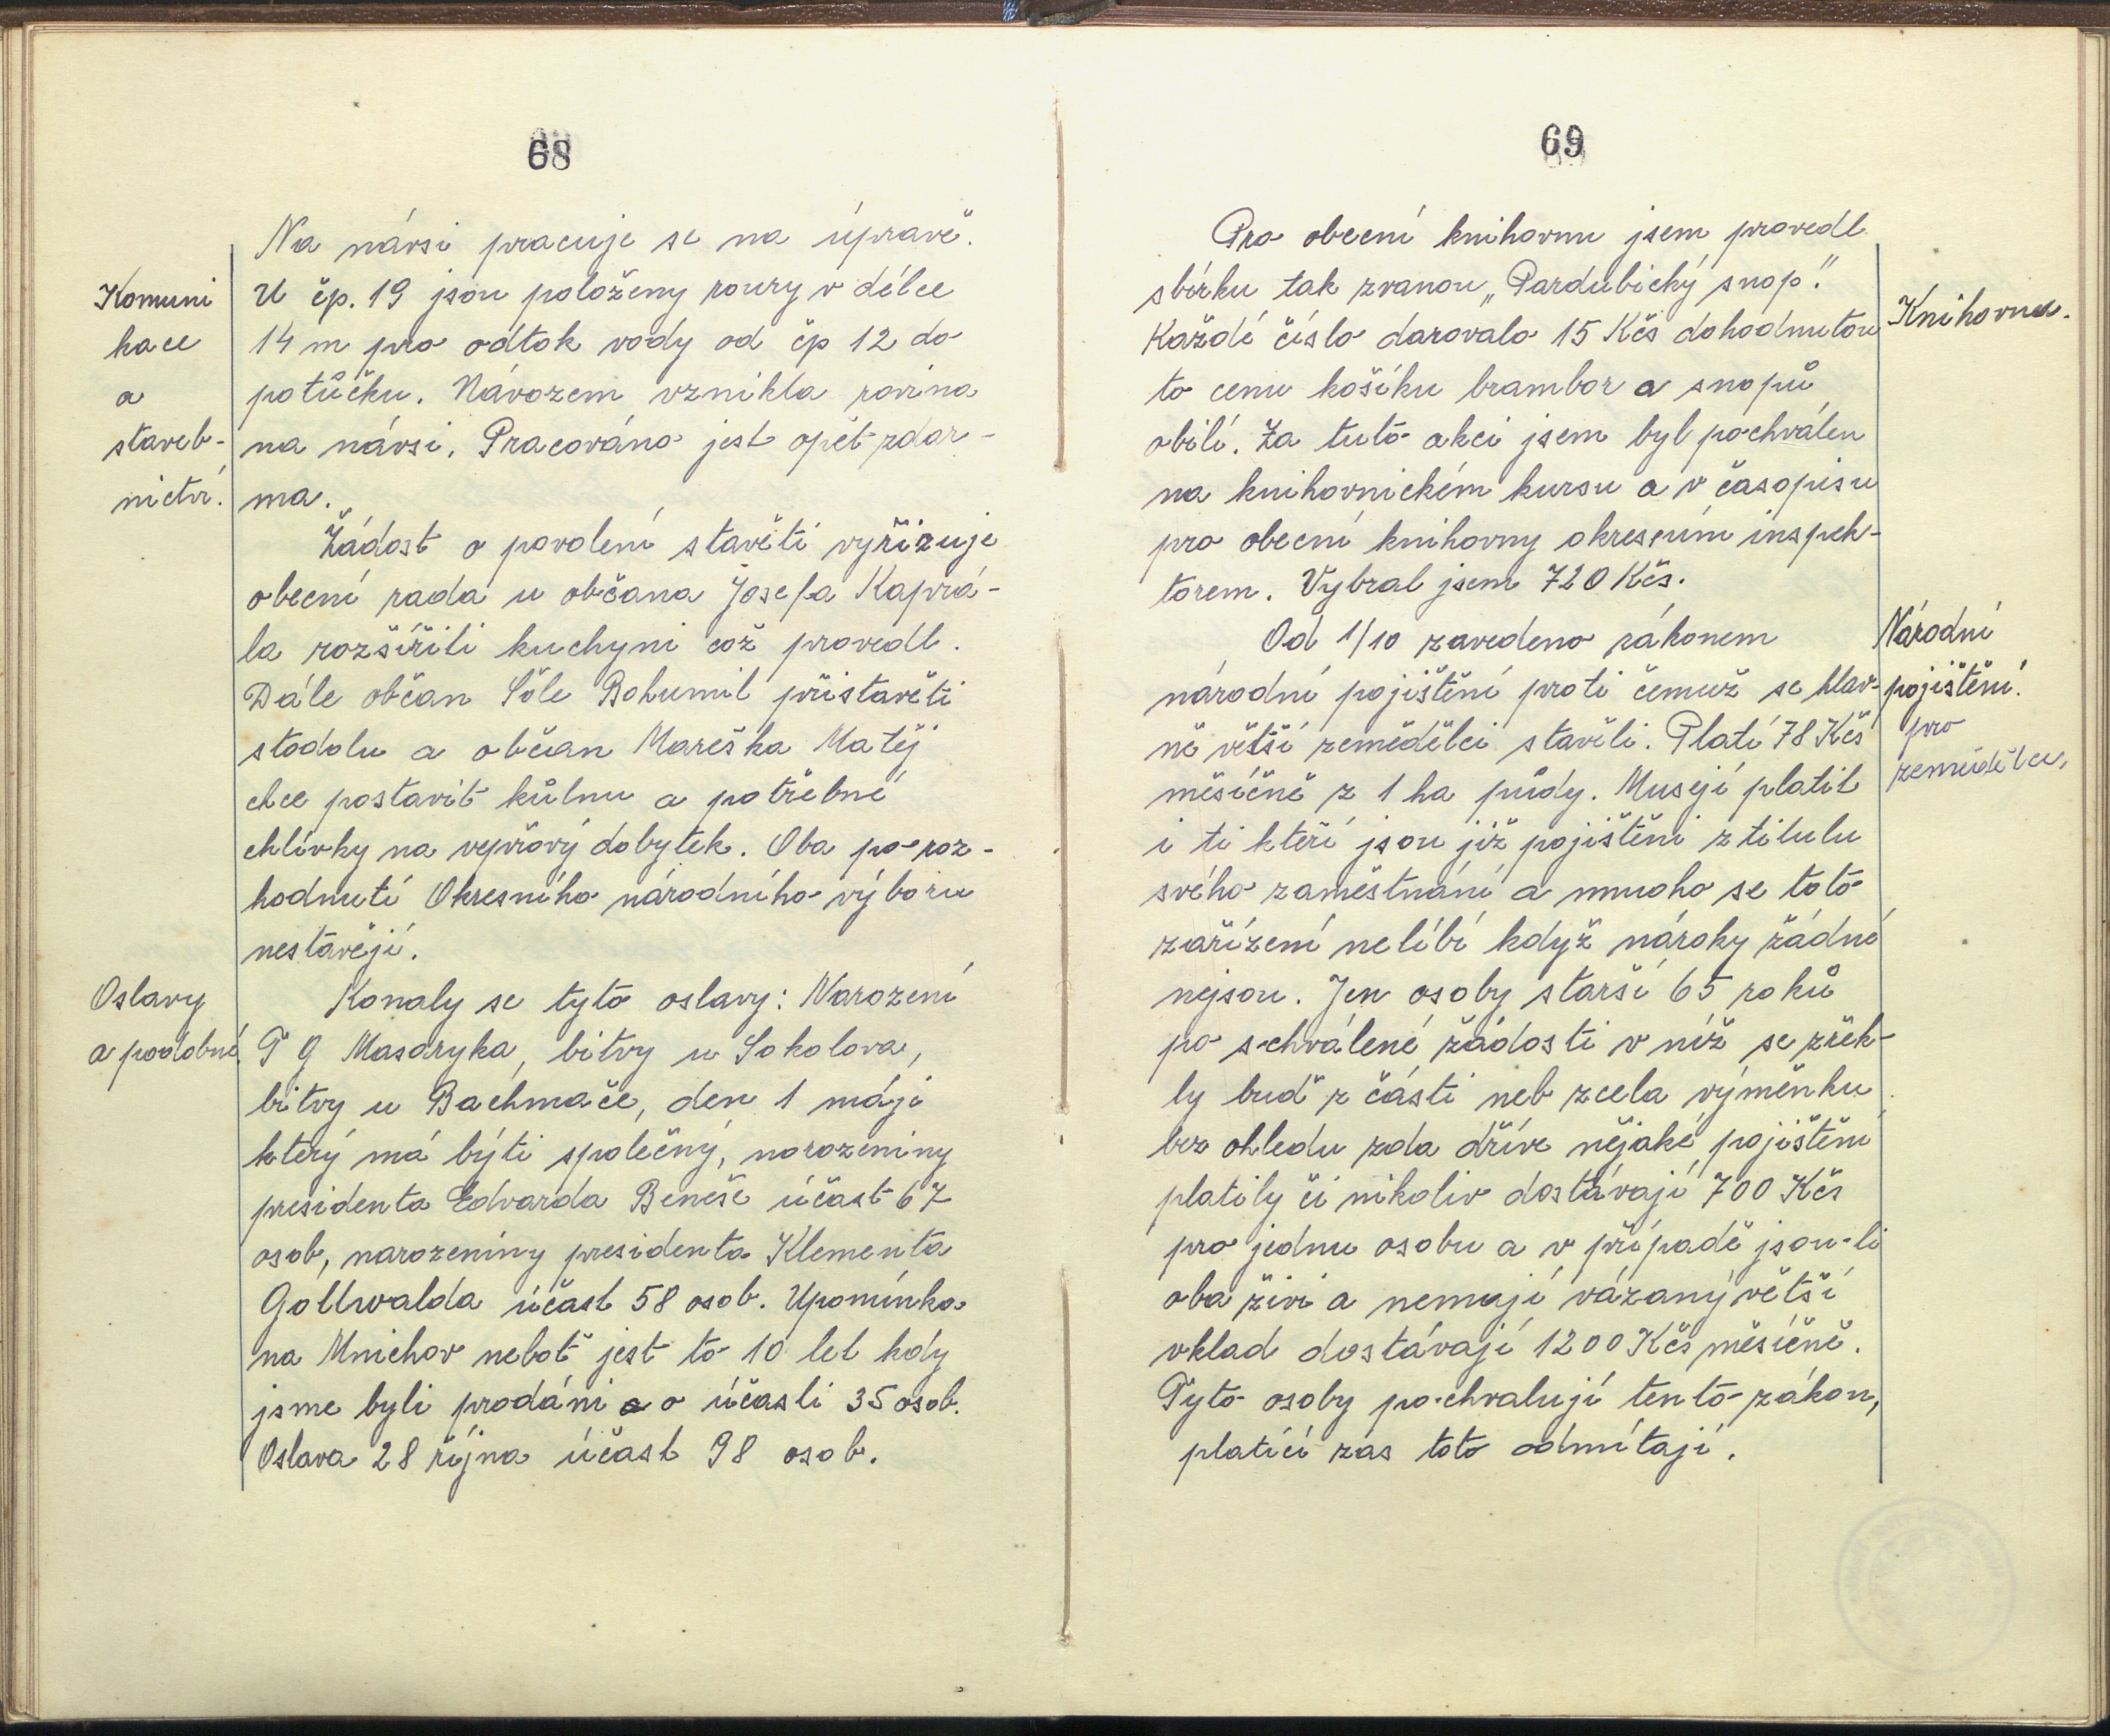 68
Na návsi pracuje se na úpravě.
Komuni
kace
a
staveb-
nictví.
U čp. 19 jsou položeny roury v délce
14 m pro odtok vody od čp 12 do
potůčku. Návozem vznikla rovina
na návsi. Pracováno jest opět zdar-
ma.
Žádost o povolení stavěti vyřizuje
obecní rada u občana Josefa Kaprá-
la rozšířiti kuchyni což provedl.
Dále občan Šóle Bohumil přistavěti
stodolu a občan Mareška Matěj
chce postavit kůlnu a potřebné
chlívky na vepřový dobytek. Oba po roz-
hodnutí Okresního národního výboru
nestavějí.
Oslavy
a podobné.
Konaly se tyto oslavy: Narození
T G Masaryka, bitvy u Sokolova,
bitvy u Bachmače, den 1 máje
který má býti společný, narozeniny
presidenta Edvarda Beneše účast 67
osob, narozeniny presidenta Klementa
Gottwalda účast 58 osob. Upomínka
na Mnichov neboť jest to 10 let kdy
jsme byli prodáni o účasti 35 osob.
Oslava 28 října účast 98 osob.
69
Pro obecní knihovnu jsem provedl
sbírku tak zvanou „Pardubický snop".
Knihovna.
Každé číslo darovalo 15 Kčs dohodnutou
to cenu košíku brambor a snopů
obilí. Za tuto akci jsem byl pochválen
na knihovnickém kursu a v časopisu
pro obecní knihovny okresním inspek-
torem. Vybral jsem 720 Kčs.
Národní
pojištění.
pro
zemědělce,
Od 1/10 zavedeno zákonem
národní pojištění proti čemuž se hlav-
ně větší zemědělci stavěli. Platí 78 Kčs
měsíčně z 1 ha půdy. Musejí platit
i ti kteří jsou již pojištěni z titulu
svého zaměstnání a mnoho se toto
zařízení nelíbí když nároky žádné
nejsou. Jen osoby starší 65 roků
po schválené žádosti v níž se zřek-
ly buď z části neb zcela výměnku
bez ohledu zda dříve nějaké pojištění
platily či nikoliv dostávají 700 Kčs
pro jednu osobu a v případě jsou-li
oba živi a nemají vázaný větší
vklad dostávají 1200 Kčs měsíčně.
Tyto osoby pochvalují tento zákon,
platící zas toto odmítají.